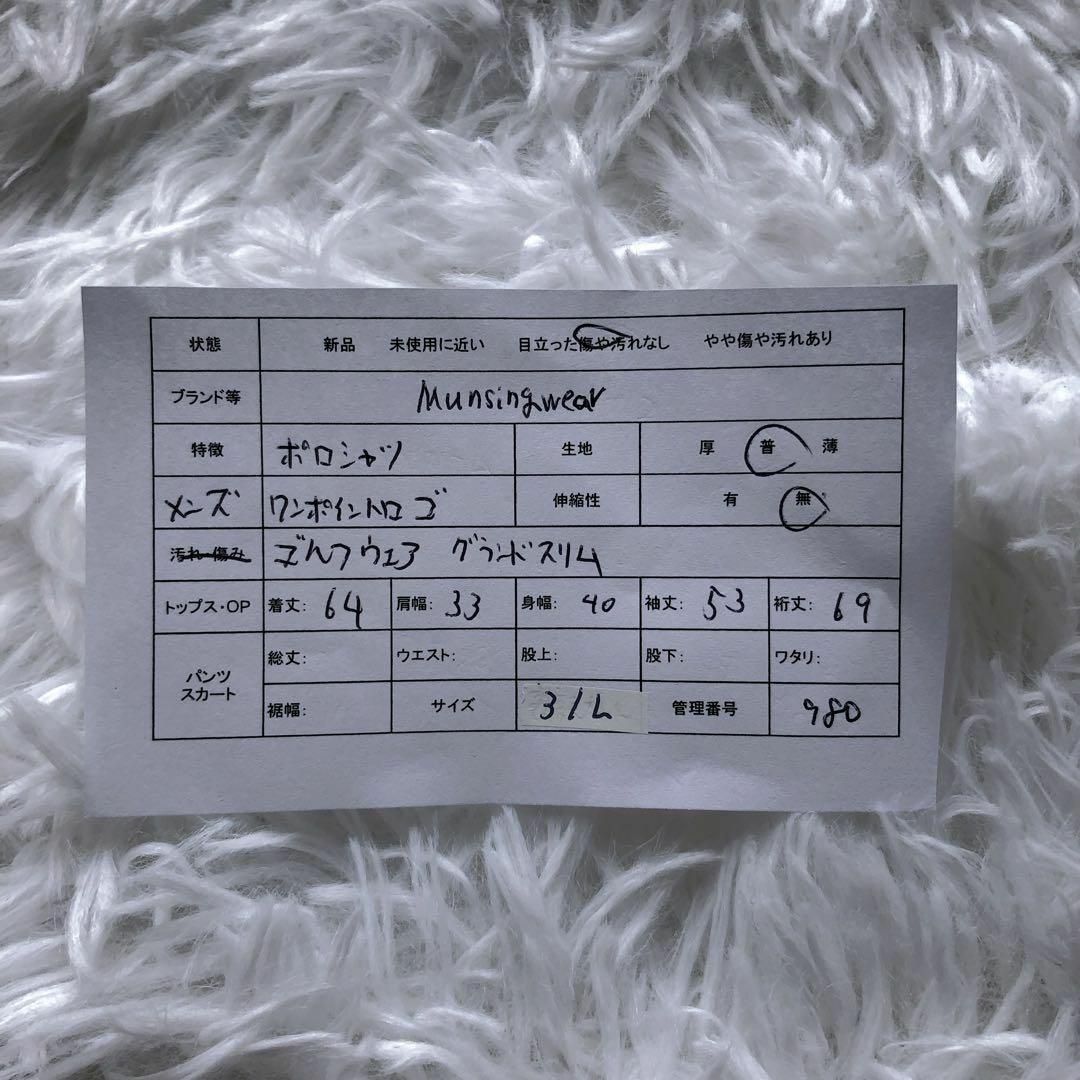 状態 新品 未使用に近い 目立った傷や汚れなし やや傷や汚れあり
ブランド等 Munsingwear
特徴 ポロシャツ 生地 厚 普 薄
メンズ ワンポイントロゴ 伸縮性 有 無
汚れ・傷み ゴルフウェア グランドスリム
トップス・OP 着丈: 64 肩幅: 33 身幅: 40 袖丈: 53 裄丈: 69
パンツ スカート 総丈: ウエスト: 股上: 股下: ワタリ:
裾幅: サイズ 3/L 管理番号 980